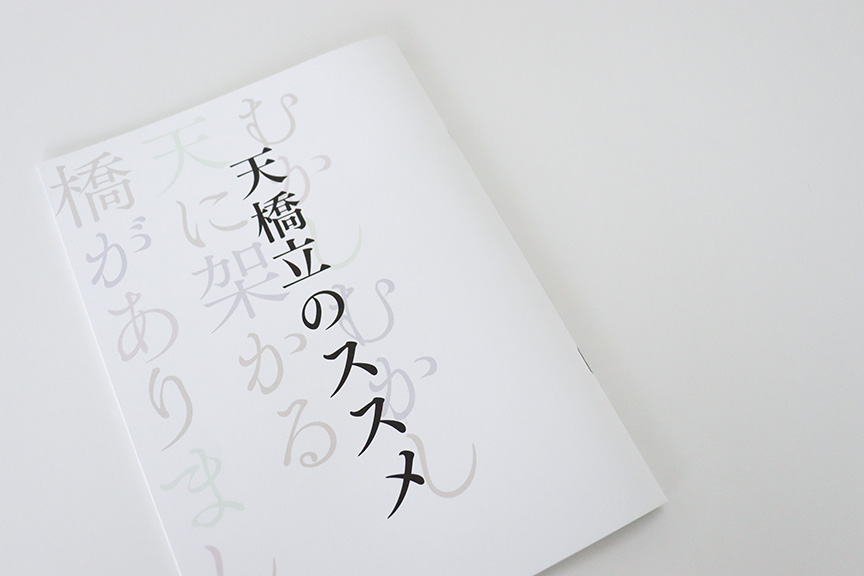 天橋立のススメ
むかしむかし
天に架かる
橋がありまし